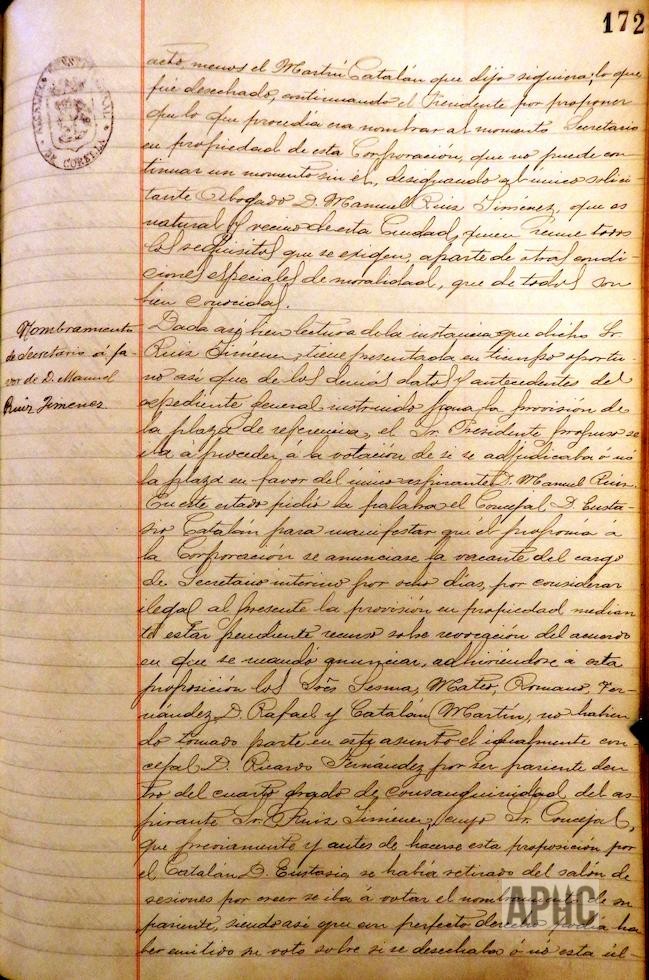 172
ALCALDIA CONSTITUCIONAL
DE CORELLA
acto menos el Martín Catalán que dijo siguiera, lo que
fué desechado, continuando el Presidente por proponer
que lo que procedía era nombrar al momento Secretario
en propiedad de esta Corporación, que no puede con-
tinuar un momento sin él, designando al único solici-
tante Abogado D. Manuel Ruiz Jiménez, que es
natural y vecino de esta Ciudad, quien reune todos
los requisitos que se exigen, aparte de otras condi-
ciones especiales de moralidad, que de todos son
bien conocidas.
Nombramiento
de Secretario á fa-
vor de D. Manuel
Ruiz Jimenez.
Dada así bien lectura de la instancia que dicho Sr.
Ruiz Jiménez, tiene presentada en tiempo oportu-
no así que de los demás datos y antecedentes del
expediente general instruido para la provisión de
la plaza de referencia, el Sr. Presidente propuso se
iba á proceder á la votación de si se adjudicaba ó nó
la plaza en favor del único aspirante D. Manuel Ruiz.
En este estado pidió la palabra el Concejal D. Eusta-
sio Catalán para manifestar que él proponía á
la Corporación se anunciase la vacante del cargo
de Secretario interino por ocho días, por considerar
ilegal al presente la provisión en propiedad median
te estar pendiente recurso sobre revocación del acuerdo
en que se mandó anunciar, adhiriéndose á esta
proposición los Sres Sesma, Mateo, Romano, Fer-
nández D. Rafael y Catalán (Martín), no habien
do tomado parte en este asunto el igualmente con-
cejal D. Ricardo Fernandez por ser pariente den
tro del cuarto grado de consanguinidad del as-
pirante Sr. Ruiz Jiménez, cuyo Sr. Concejal,
que previamente y antes de hacerse esta proposición por
el Catalán D. Eustasio, se había retirado del salón de
sesiones por creer se iba á votar el nombramiento de su
pariente, siendo así que con perfecto derecho podía ha
ber emitido su voto sobre si se desechaba ó nó esta úl-
APHC